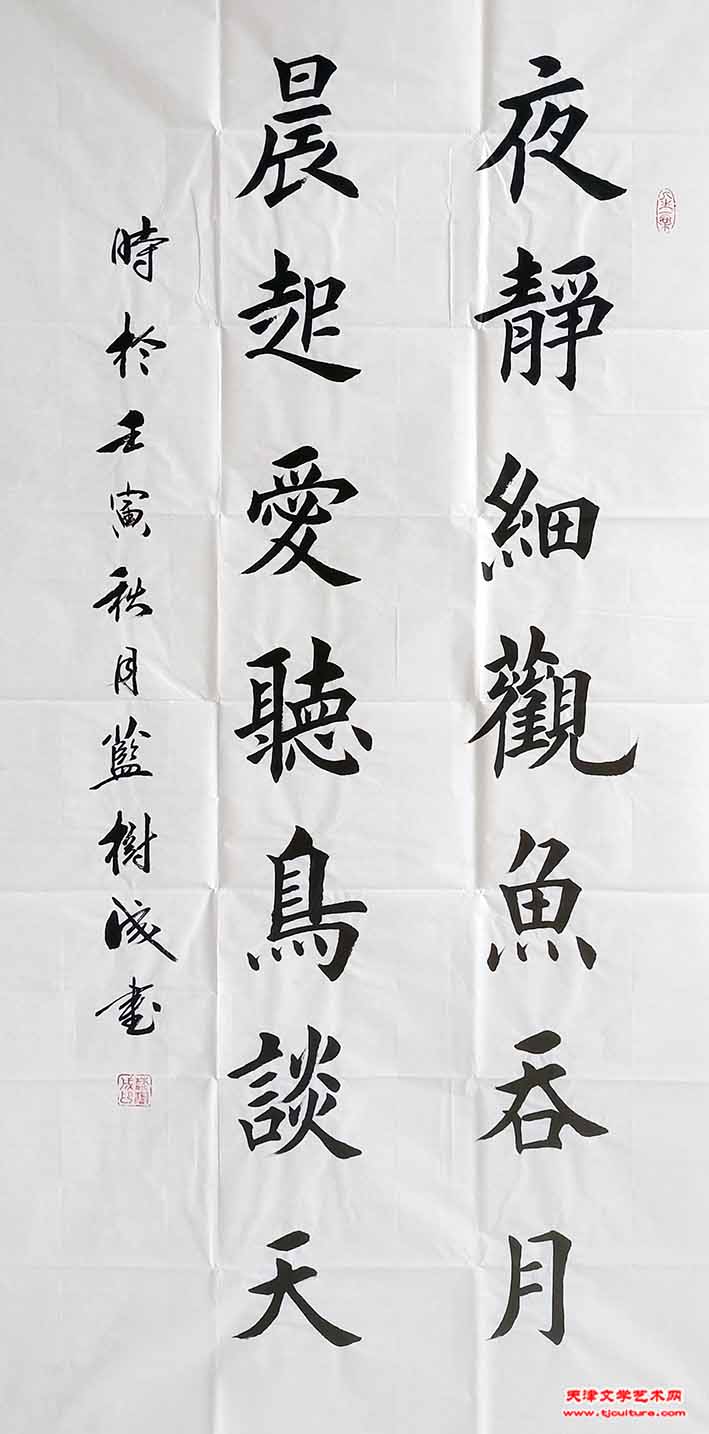 夜靜細觀魚吞月
晨起愛聽鳥談天
時於壬寅秋月藍樹成書
天津文学艺术网
www.tjculture.com